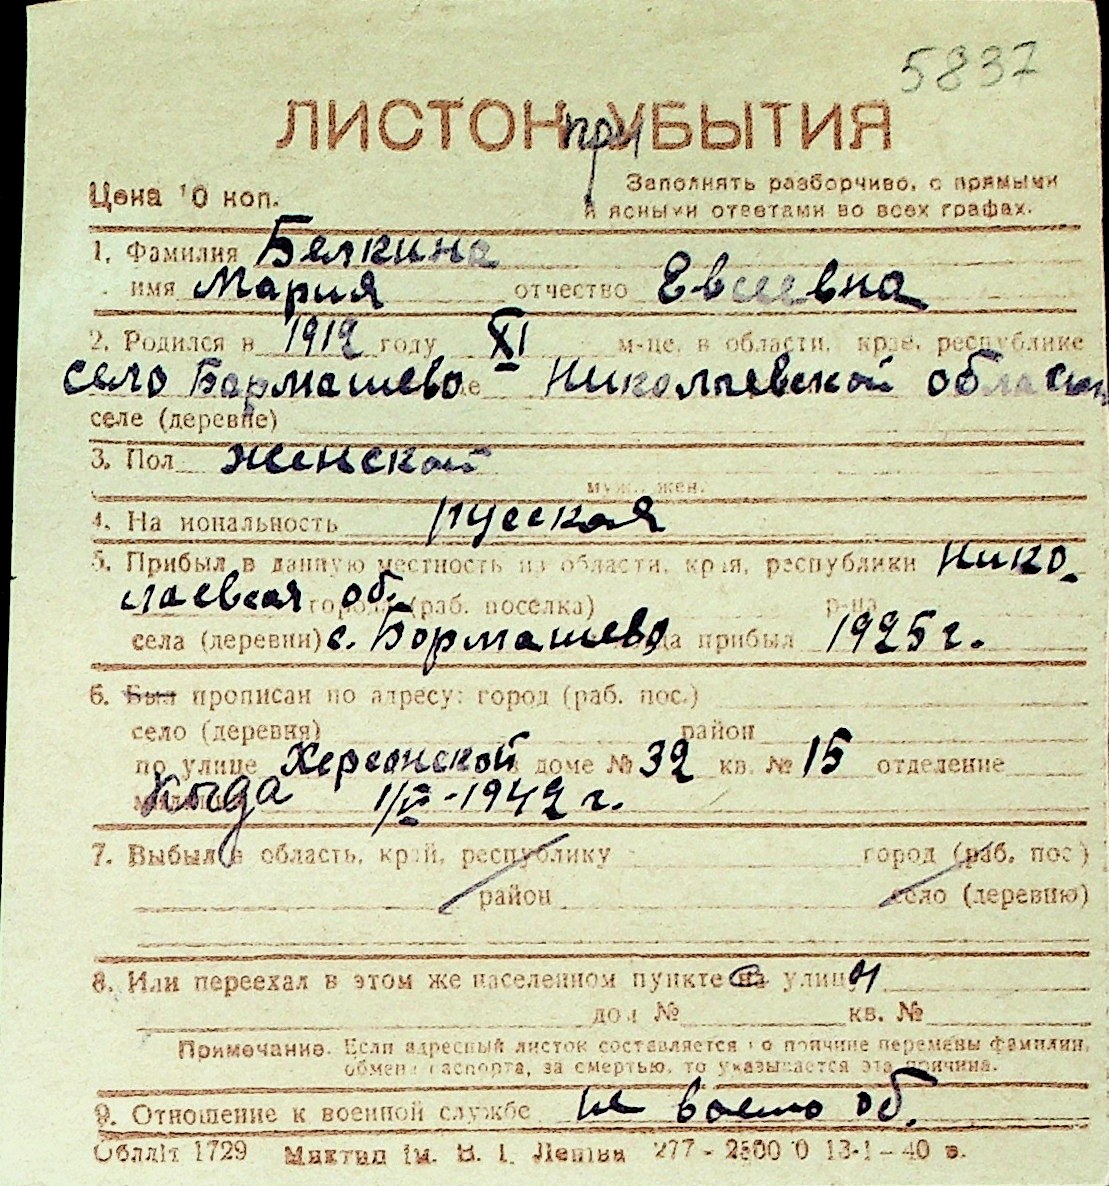 5837
ЛИСТОК при УБЫТИЯ
Цена 10 коп.
Заполнять разборчиво, с прямыми
и ясными ответами во всех графах.
1. Фамилия Белкина
имя Мария отчество Евсеевна
2. Родился в 1912 году XI м-це, в области, крае, республике
село Бармашево Николаевской области
селе (деревне)
3. Пол женской
муж., жен.
4. Национальность русская
5. Прибыл в данную местность из области, края, республики Нико
лаевская об. города (раб. поселка) р-на
села (деревни) с. Бормашево прибыл 1925 г.
6. Был прописан по адресу: город (раб. пос.)
село (деревня) район
по улице Херсонской в доме № 32 кв. № 15 отделение
Когда 1/IV-1942 г.
7. Выбыл в область, край, республику город (раб. пос.)
район село (деревню)
8. Или переехал в этом же населенном пункте с улицы
дом № кв. №
Примечание. Если адресный листок составляется по причине перемены фамилии,
обмена паспорта, за смертью, то указывается эта причина.
9. Отношение к военной службе не воено об.
Обллiт 1729 iм. В. I. Ленiна 277 - 2500 0 13-1-40 в.